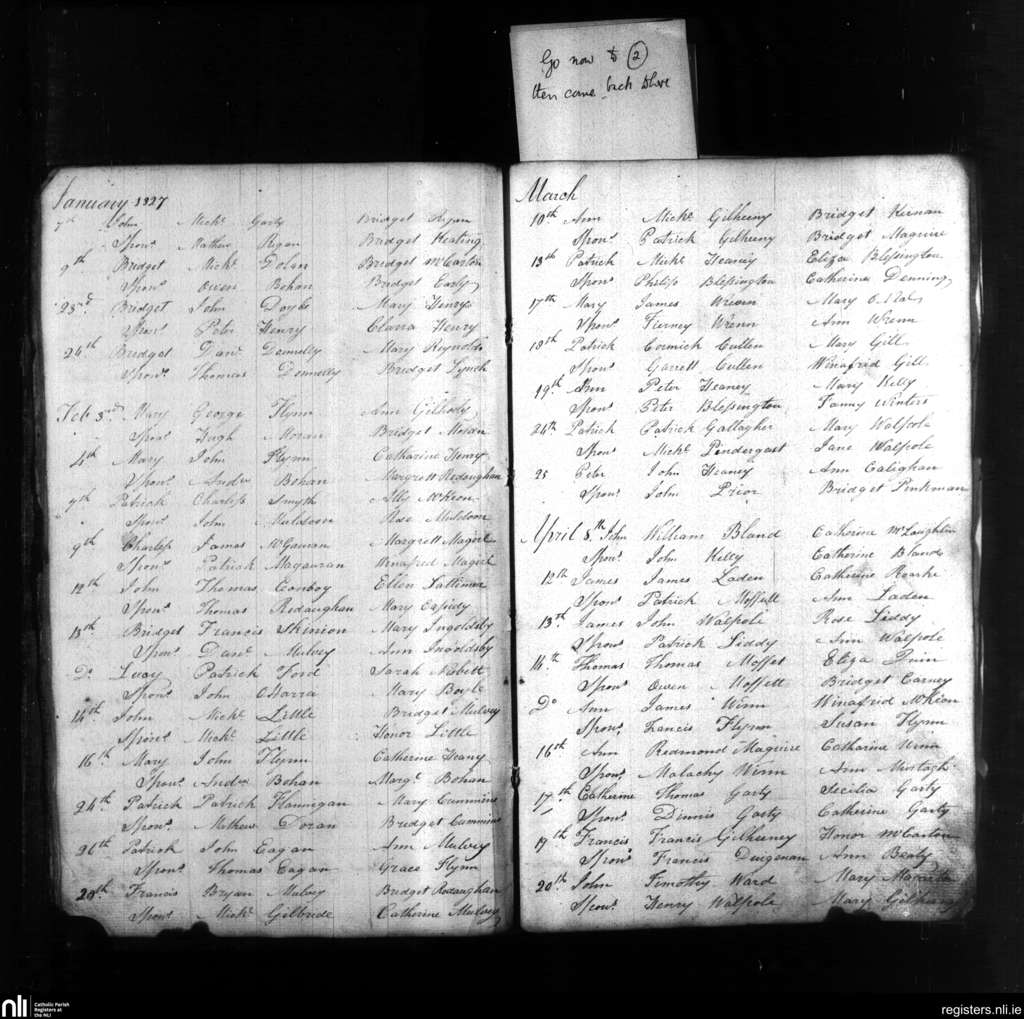 Go now to 2
then come back
January 1827
7th John Michl Garty Bridget Ryan
Sponr Mathew Ryan Bridget Keating
9th Bridget Michl Dolan Bridget McCarton
Sponr Owen Bohan Bridget Early
23rd Bridget John Doyle Mary Henry
Sponr Peter Henry Clarra Henry
24th Bridget Danl Donnelly Mary Reynolds
Sponr Thomas Donnelly Bridget Lynch
Feb 3rd Mary George Flynn Ann Gilhooly
Sponr Hugh Moran Bridget Moran
4th Mary John Flynn Catharine Henry
Sponr Andw Bohan Margrett Redaughan
7th Patrick Charless Smyth McKeon
Sponr John Muldoon Rose Muldoon
9th Charless James McGauran Margrett Magirl
Sponr Patrick Magauran Winafred Magirl
12th John Thomas Conboy Ellen Lattimer
Sponr Thomas Redaughan Mary Cassidy
13th Bridget Francis Skinion Mary Ingoldsby
Sponr Danl Mulvey Ann Ingoldsby
Do Lucy Patrick Ford Sarah Nobett
Sponr John OHarra Mary Boyle
14th John Michl Little Bridget Mulvey
Sponr Michl Little Honor Little
16th Mary John Flynn Catherine Heany
Sponr Andw Bohan Margt Bohan
24th Patrick Patrick Flannigan Mary Cummins
Sponr Mathew Doran Bridget Cummins
26th Patrick John Eagan Ann Mulvey
Sponr Thomas Eagan Grace Flynn
28th Francis Bryan Mulvey Bridget Redaughan
Sponr Michl Gilbride Catherine Mulvey
March
10th Ann Michl Gilheeny Bridget Kernan
Sponr Patrick Gilheeny Bridget Maguire
13th Patrick Michl Heaney Eliza Blessington
Sponr Philip Blessington Catherine Denning
17th Mary James Wrenn Mary
Sponr Tierney Wrenn Ann Wrenn
18th Patrick Cormick Cullen Mary Gill
Sponr Garrett Cullen Winafrid Gill
19th Ann Peter Heaney Mary Kelly
Sponr Peter Blessington Fanny Winters
24th Patrick Patrick Gallagher Mary Walpole
Sponr Michl Pindergast Jane Walpole
25 Peter John Heaney Ann Calighan
Sponr John Prior Bridget Penkman
April 8th John William Bland Catherine McLaughlin
Sponr John Kelly Catherine Bland
12th James James Laden Catherine Roarke
Sponr Patrick Moffett Ann Laden
13th James John Walpole Rose Liddy
Sponr Patrick Liddy Ann Walpole
14th Thomas Thomas Moffet Eliza Quin
Sponr Owen Moffett Bridget Carney
Do Ann James Winn Winafrid McKeon
Sponr Francis Flynn Susan Flynn
16th Ann Redmond Maguire Catharine Winn
Sponr Malachy Winn Ann
17th Catherine Thomas Garty Secilia Garty
Sponr Dinnis Garty Catherine Garty
19th Francis Francis Gilheeney Honor McCarton
Sponr Francis Duigenan Ann Beaty
20th John Timothy Ward Mary
Sponr Henry Walpole Mary Gilheany
nli Catholic Parish
Registers at
the NLI
registers.nli.ie